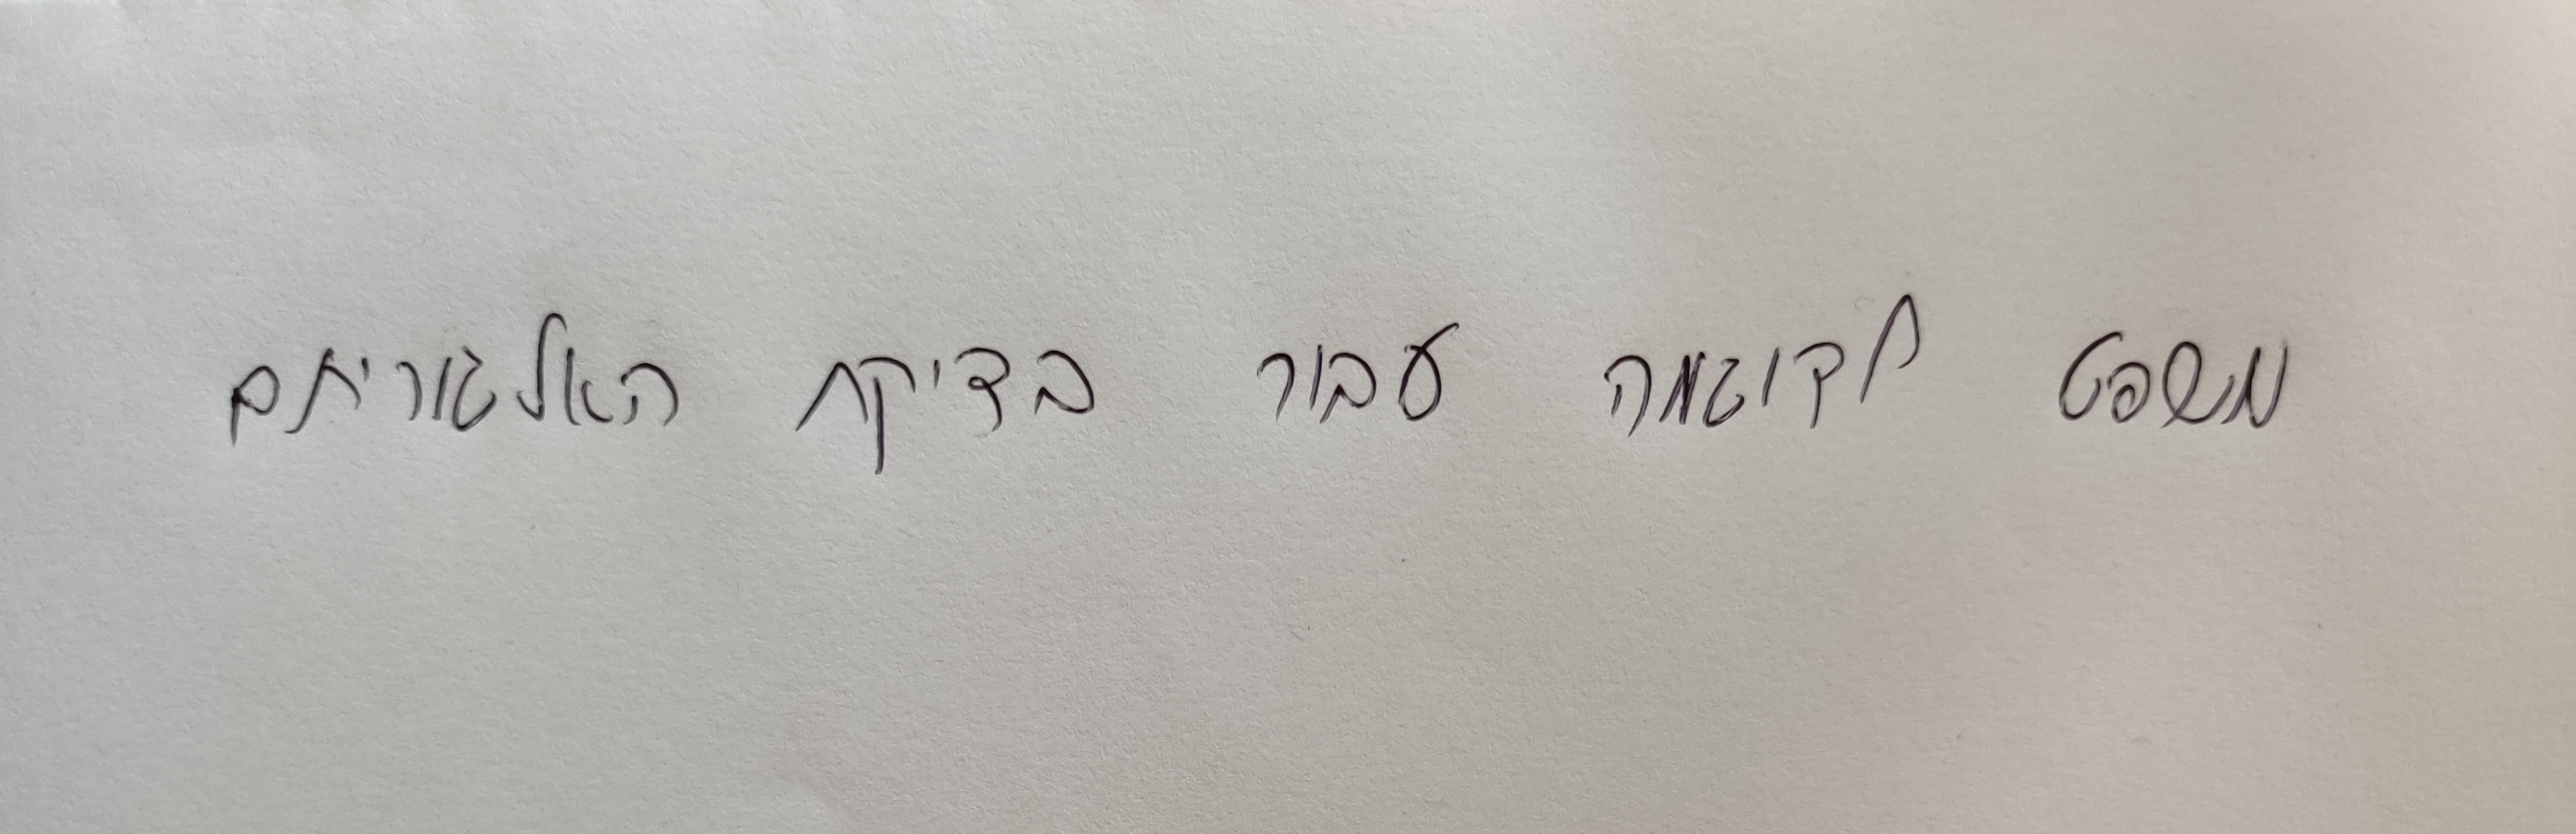 משפט לדוגמה עבור בדיקת האלגוריתם